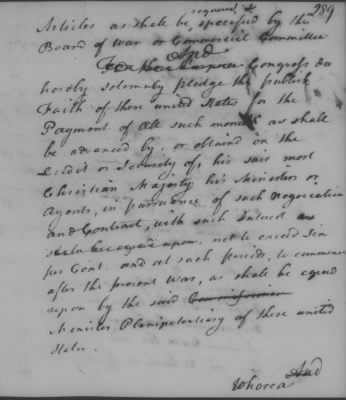 289
required &
Articles as shall be, specified by the
Board of War or Commercial Committee
And
For these Purposes Congress do
hereby solemnly pledge the publick
Faith of these united States for the
Payment of all such monies as shall
be advanced by, or obtaind on the
Credit or Security of, his said most
Christian Majesty his Ministers or
Agents, in pursuance of such Negociation
and Contract, with such Interest as
shall be agreed upon, not to exceed Ten
per Cent. and at such periods, to commence
after the present War, as shall be agreed
upon by the said Commissioner
Minister Plenipotentiary of these united
States.
And
Whereas